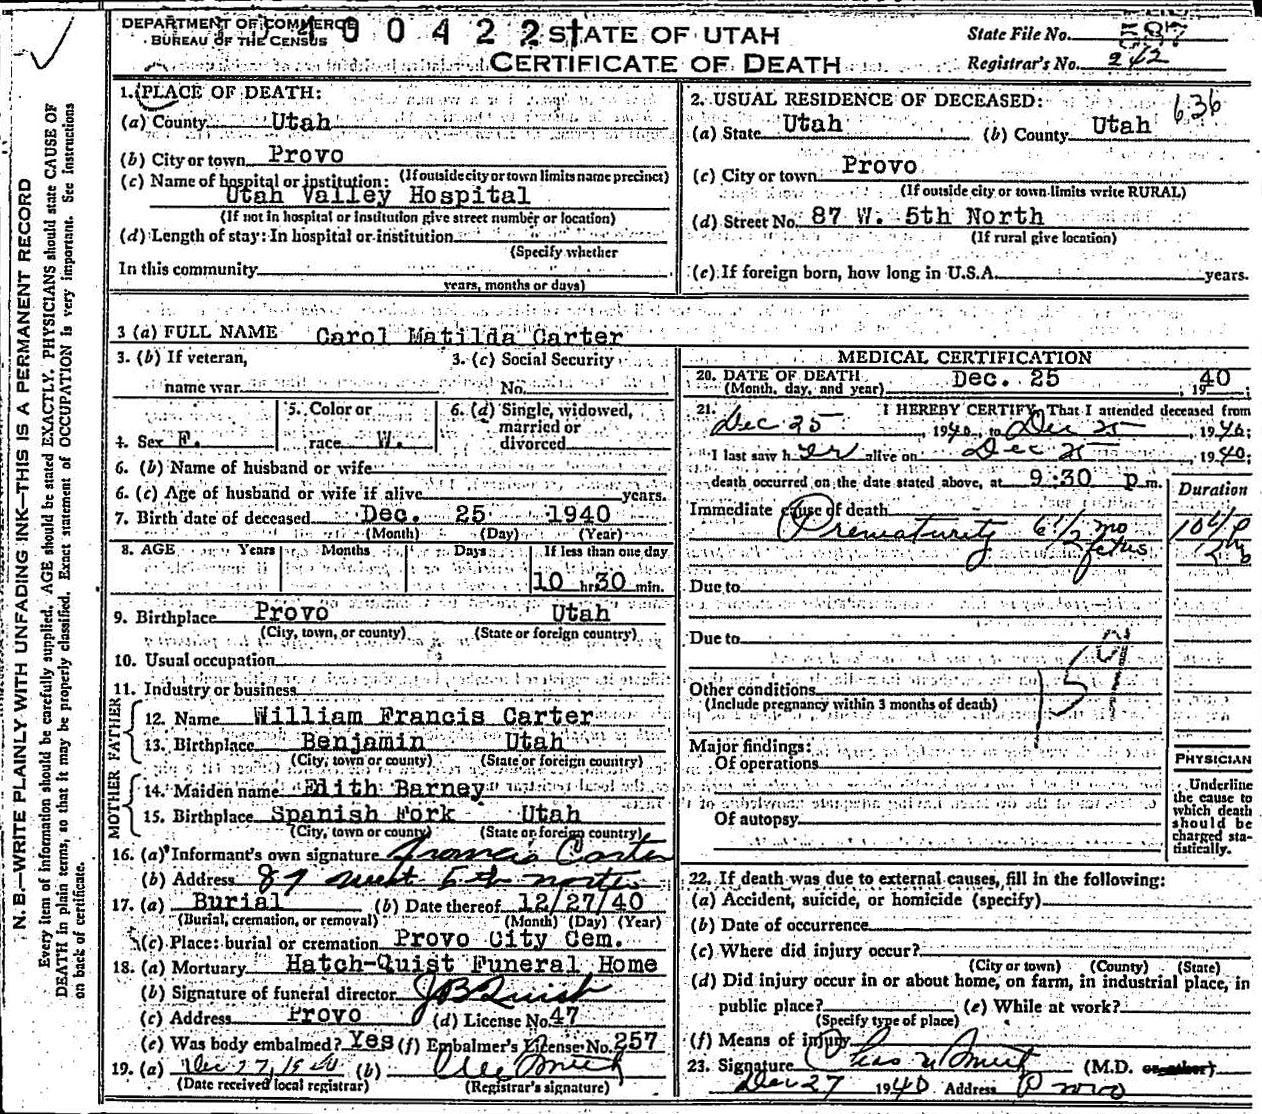 DEPARTMENT OF COMMERCE
BUREAU OF THE CENSUS
400422
STATE OF UTAH
CERTIFICATE OF DEATH
State File No.
Registrar's No. 242
1. PLACE OF DEATH:
(a) County Utah
(b) City or town Provo
(If outside city or town limits name precinct)
(c) Name of hospital or institution:
Utah Valley Hospital
(If not in hospital or institution give street number or location)
(d) Length of stay: In hospital or institution
(Specify whether
In this community
years, months or days)
2. USUAL RESIDENCE OF DECEASED: 636
(a) State Utah (b) County Utah
(c) City or town Provo
(If outside city or town limits write RURAL)
(d) Street No. 87 W. 5th North
(If rural give location)
(e) If foreign born, how long in U.S.A. years.
3 (a) FULL NAME Carol Matilda Carter
3. (b) If veteran, 3. (c) Social Security
name war No.
4. Sex F. 5. Color or race W. 6. (d) Single, widowed, married or divorced
6. (b) Name of husband or wife
6. (c) Age of husband or wife if alive years.
7. Birth date of deceased Dec. 25 1940
(Month) (Day) (Year)
8. AGE Years Months Days If less than one day
10 hr 30 min.
9. Birthplace Provo Utah
(City, town, or county) (State or foreign country)
10. Usual occupation
11. Industry or business
FATHER
12. Name William Francis Carter
13. Birthplace Benjamin Utah
(City, town or county) (State or foreign country)
MOTHER
14. Maiden name Edith Barney
15. Birthplace Spanish Fork Utah
(City, town or county) (State or foreign country)
16. (a) Informant's own signature Francis Carter
(b) Address 87 West 5th North
17. (a) Burial (b) Date thereof 12/27/40
(Burial, cremation, or removal) (Month) (Day) (Year)
(c) Place: burial or cremation Provo City Cem.
18. (a) Mortuary Hatch-Quist Funeral Home
(b) Signature of funeral director J B Quist
(c) Address Provo (d) License No. 47
(e) Was body embalmed? Yes (f) Embalmer's License No. 257
19. (a) Dec 27, 1940 (b)
(Date received local registrar) (Registrar's signature)
MEDICAL CERTIFICATION
20. DATE OF DEATH
(Month, day, and year) Dec. 25, 1940;
21. I HEREBY CERTIFY, That I attended deceased from
Dec 25, 1940, to Dec 25, 1940;
I last saw her alive on Dec 25, 1940;
death occurred on the date stated above, at 9:30 p.m.
Duration
Immediate cause of death
Prematurity 6 1/2 mo
fetus
10 1/2
Due to
Due to
159
Other conditions
(Include pregnancy within 3 months of death)
Major findings:
Of operations
Of autopsy
PHYSICIAN
Underline
the cause to
which death
should be
charged sta-
tistically.
22. If death was due to external causes, fill in the following:
(a) Accident, suicide, or homicide (specify)
(b) Date of occurrence
(c) Where did injury occur?
(City or town) (County) (State)
(d) Did injury occur in or about home, on farm, in industrial place, in
public place? (e) While at work?
(Specify type of place)
(f) Means of injury
23. Signature (M.D. or other)
Dec 27 1940 Address Provo
N. B.—WRITE PLAINLY WITH UNFADING INK—THIS IS A PERMANENT RECORD
Every item of information should be carefully supplied. AGE should be stated EXACTLY. PHYSICIANS should state CAUSE OF
DEATH in plain terms, so that it may be properly classified. Exact statement of OCCUPATION is very important. See instructions
on back of certificate.